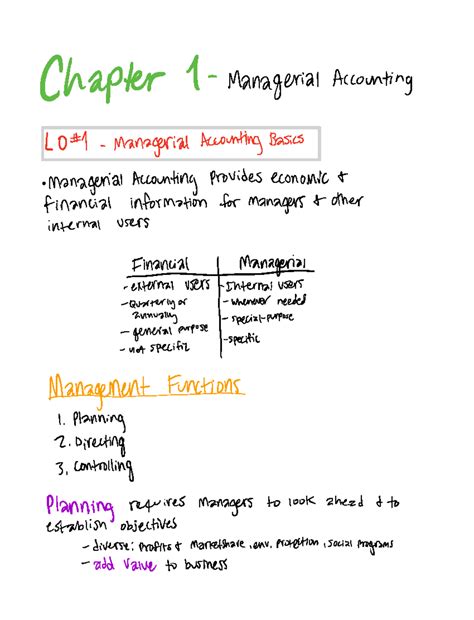 Chapter 1 - Managerial Accounting
LO#1 - Managerial Accounting Basics
• Managerial Accounting provides economic &
financial information for managers & other
internal users
Financial Managerial
- external users - Internal users
- Quarterly or - whenever needed
Annually - special-purpose
- general purpose - specific
- not specific
Management Functions
1. Planning
2. Directing
3. Controlling
Planning requires managers to look ahead & to
establish objectives
- diverse: profits & marketshare, env. protection, social programs
- add value to business